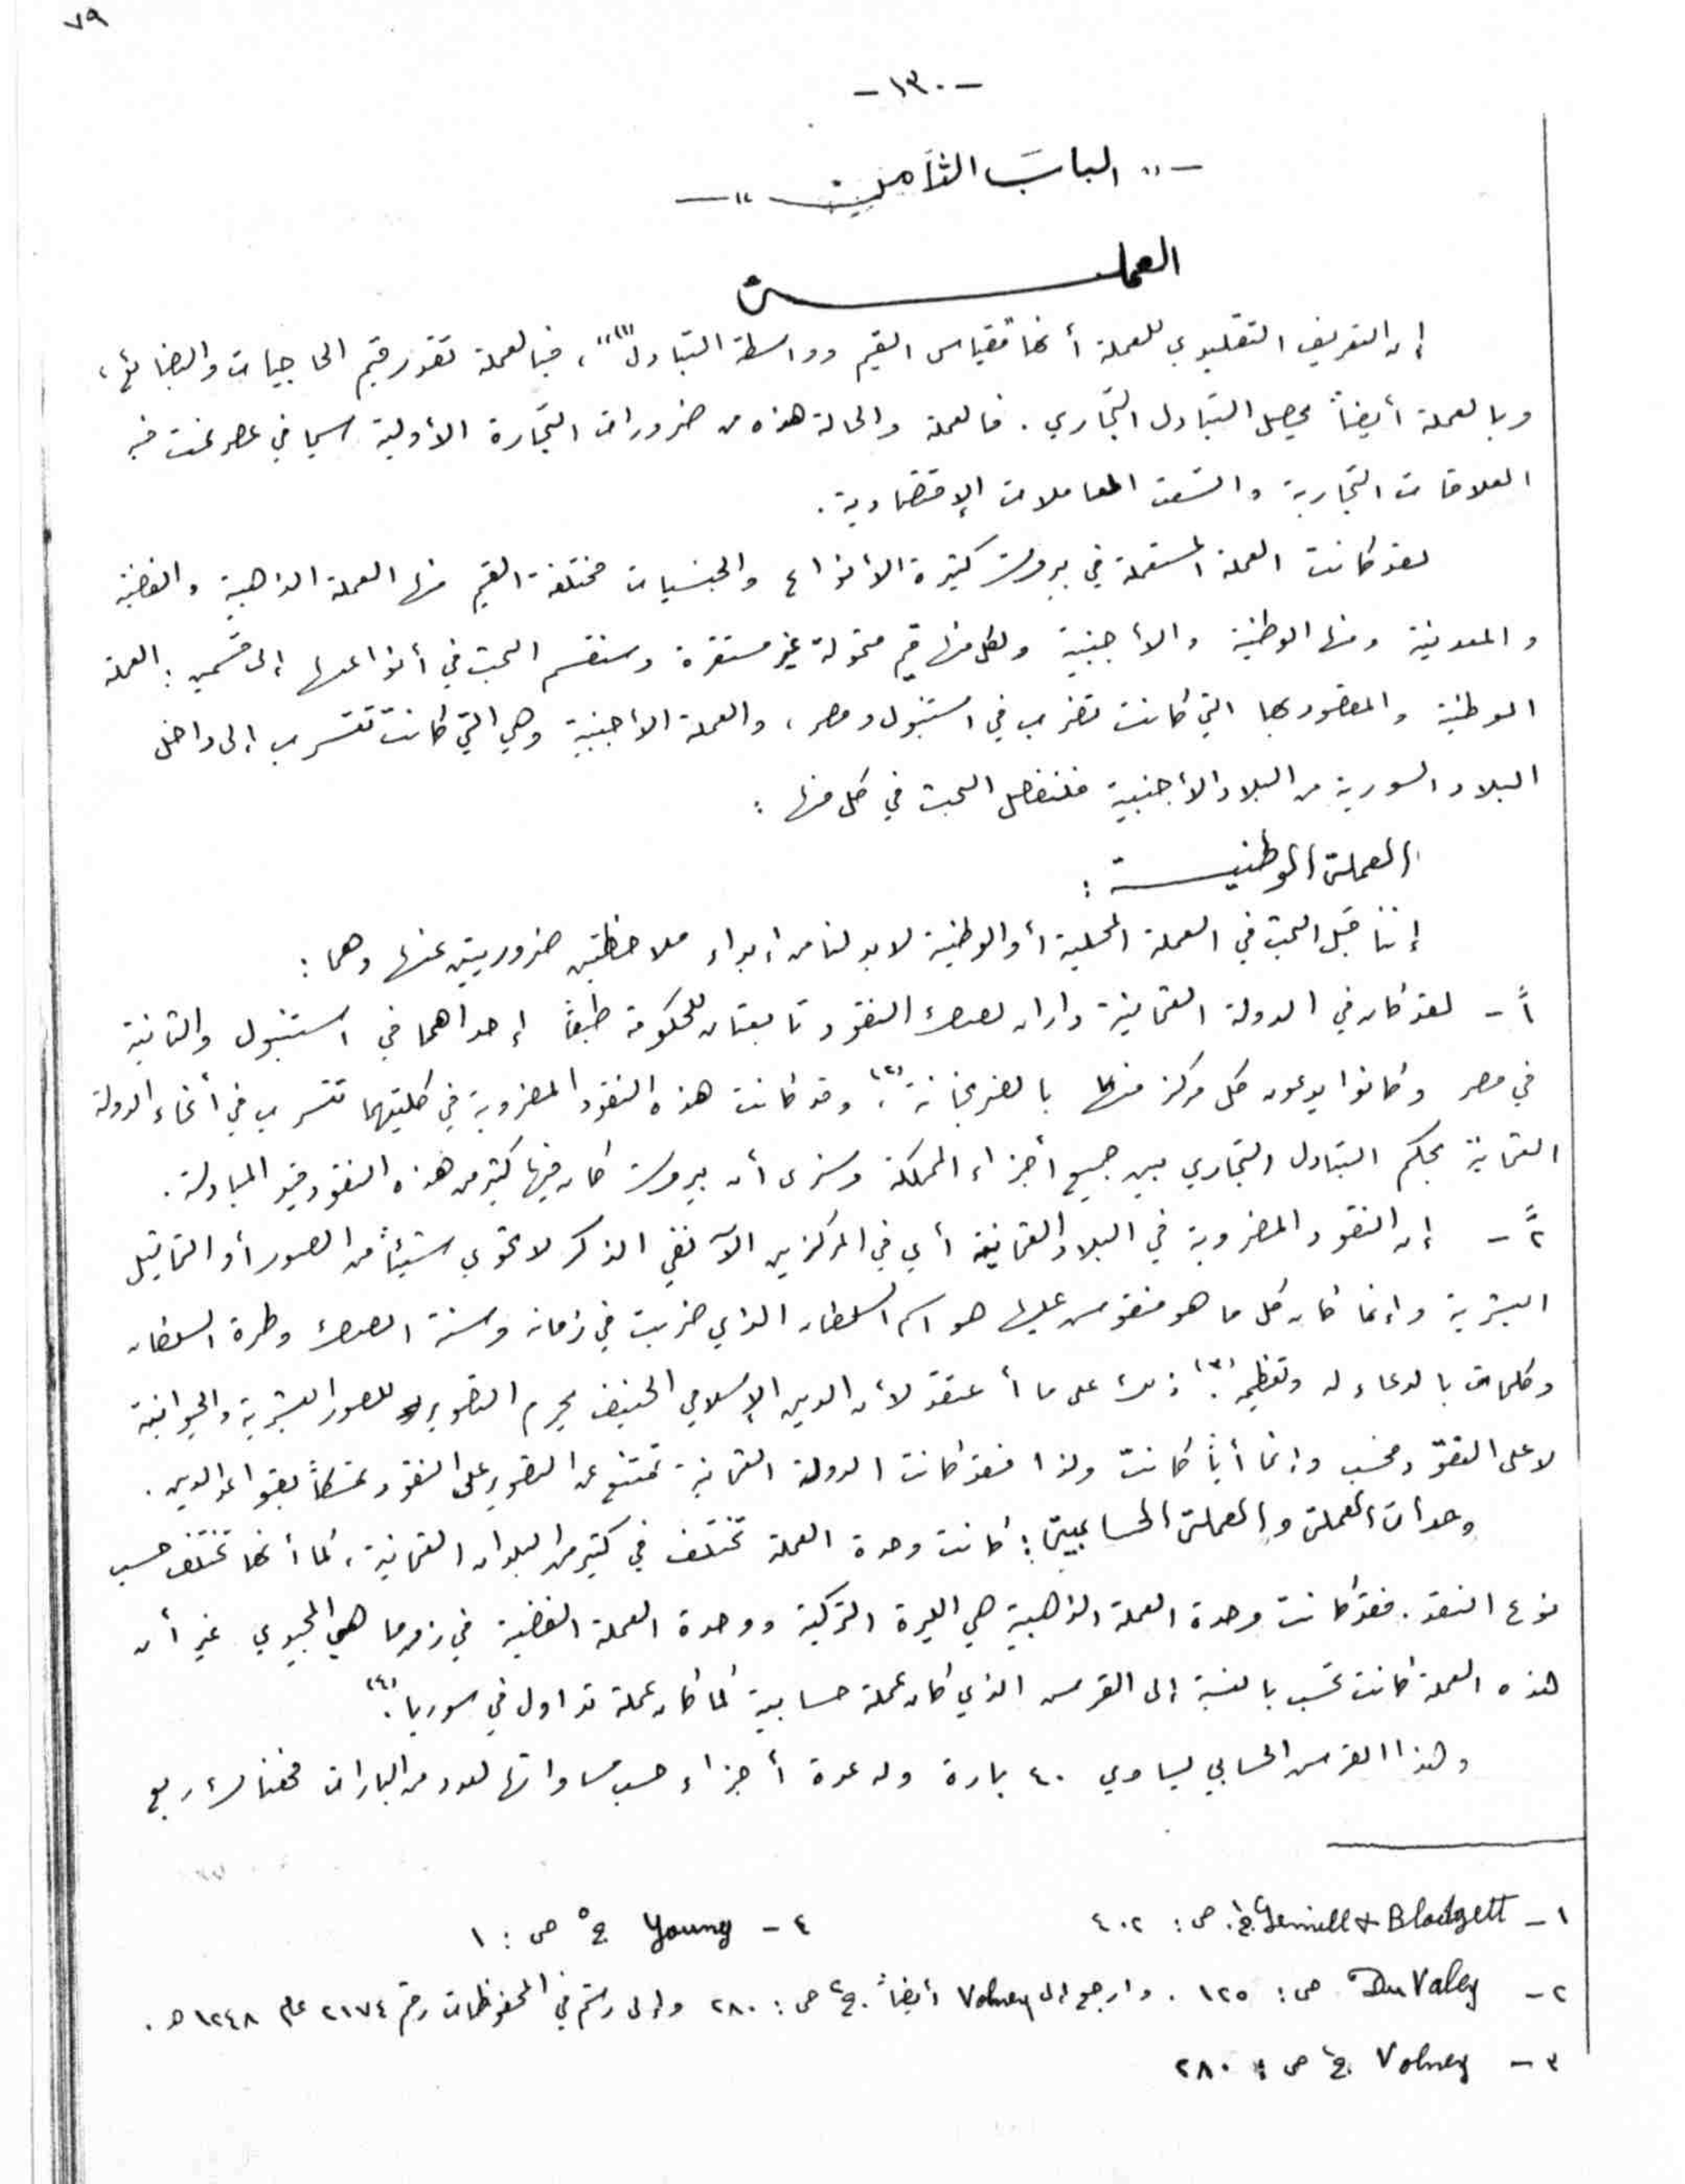 ٧٩
- ١٣٠ -
- " الباب الثامن " -
العملة
إن التعريف التقليدي للعملة أنها "مقياس القيم وواسطة التبادل"(١)، فبالعملة تقدر قيم الحاجيات والبضائع،
وبالعملة أيضاً يحصل التبادل التجاري. فالعملة والحالة هذه من ضرورات التجارة الأولية سيما في عصر نمت فيه
العلاقات التجارية واتسعت المعاملات الإقتصادية.
لقد كانت العملة المستعملة في بيروت كثيرة الأنواع والجنسيات مختلفة القيم منها العملة الذهبية والفضية
والمعدنية ومنها الوطنية والأجنبية ولكل منها قيم متحولة غير مستقرة وسنقسم البحث في أنواعها إلى قسمين: العملة
الوطنية والمقصود بها التي كانت تضرب في استنبول ومصر، والعملة الاجنبية وهي التي كانت تتسرب إلى داخل
البلاد السورية من البلاد الأجنبية فلنفصل البحث في كل منها:
العملة الوطنية:
إننا قبل البحث في العملة المحلية أو الوطنية لا بد لنا من إبداء ملاحظتين ضروريتين عنها وهما:
١ً - لقد كان في الدولة العثمانية داران لصك النقود تابعتان للحكومة طبعاً إحداهما في استنبول والثانية
في مصر وكانوا يدعون كل مركز منها بالضربخانة(٢)، وقد كانت هذه النقود المضروبة في كلتيهما تتسرب في أنحاء الدولة
العثمانية بحكم التبادل التجاري بين جميع أجزاء المملكة وسنرى أن بيروت كان فيها كثير من هذه النقود قيد المبادلة.
٢ً - إن النقود المضروبة في البلاد العثمانية أي في المركزين الآنفي الذكر لا تحوي شيئاً من الصور أو التماثيل
البشرية وإنما كان كل ما هو منقوش عليها هو اسم السلطان الذي ضربت في زمانه وسنة الصك وطرة السلطان
وكلمات بالدعاء له وتعظيمه(٣). ذلك على ما أعتقد لأن الدين الإسلامي الحنيف يحرم التصوير للصور البشرية والحيوانية
لا على النقود فحسب وإنما أياً كانت ولذا فقد كانت الدولة العثمانية تمتنع عن التصوير على النقود تمسكاً بقواعد الدين.
وحدات العملة والعملة الحسابية: كانت وحدة العملة تختلف في كثير من البلدان العثمانية، كما أنها تختلف حسب
نوع النقد. فقد كانت وحدة العملة الذهبية هي الليرة التركية ووحدة العملة الفضية في زمن ما هي المجيدي غير أن
هذه العملة كانت تحسب بالنسبة إلى القرش الذي كان عملة حسابية كما كان عملة تداول في سوريا(٤).
وهذا القرش الحسابي يساوي ٤٠ بارة وله عدة أجزاء حسب مساواتها لعدد من البارات فهناك ربع
١ - Gemill & Blodgett ج١. ص: ٤٠٢
٤ - Young ج٥ ص: ١
٢ - Du Valey ص: ١٢٥. وارجع إلى Volney أيضاً. ج٢ ص: ٢٨٠ وإلى رستم في المحفوظات رقم ٢١٧٤ عام ١٢٤٨ هـ.
٣ - Volney ج٢ ص: ٢٨٠